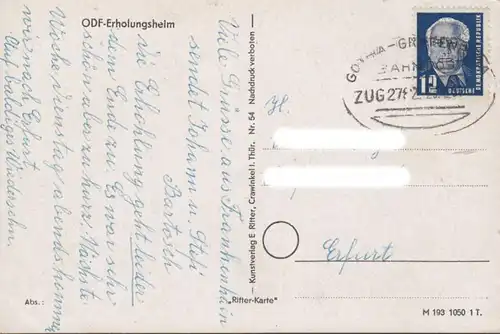 ODF-Erholungsheim
Viele Grüsse aus Frankenhain
sendet Johann u. Stefi
Bartosch
die Erholung geht leider
dem Ende zu. Es war sehr
schön aber zu kurz. Nächste
Woche Dienstag abends kommen
wir nach Erfurt
Auf baldiges Wiedersehn.
Abs.:
„Ritter-Karte"
— Kunstverlag E. Ritter, Crawinkel i. Thür. Nr. 54 Nachdruck verboten —
H.
Erfurt
GOTHA - GRÄFENR
BAHN
ZUG 2762
12
DEUTSCHE
DEMOKRATISCHE REPUBLIK
M 193 1050 1 T.